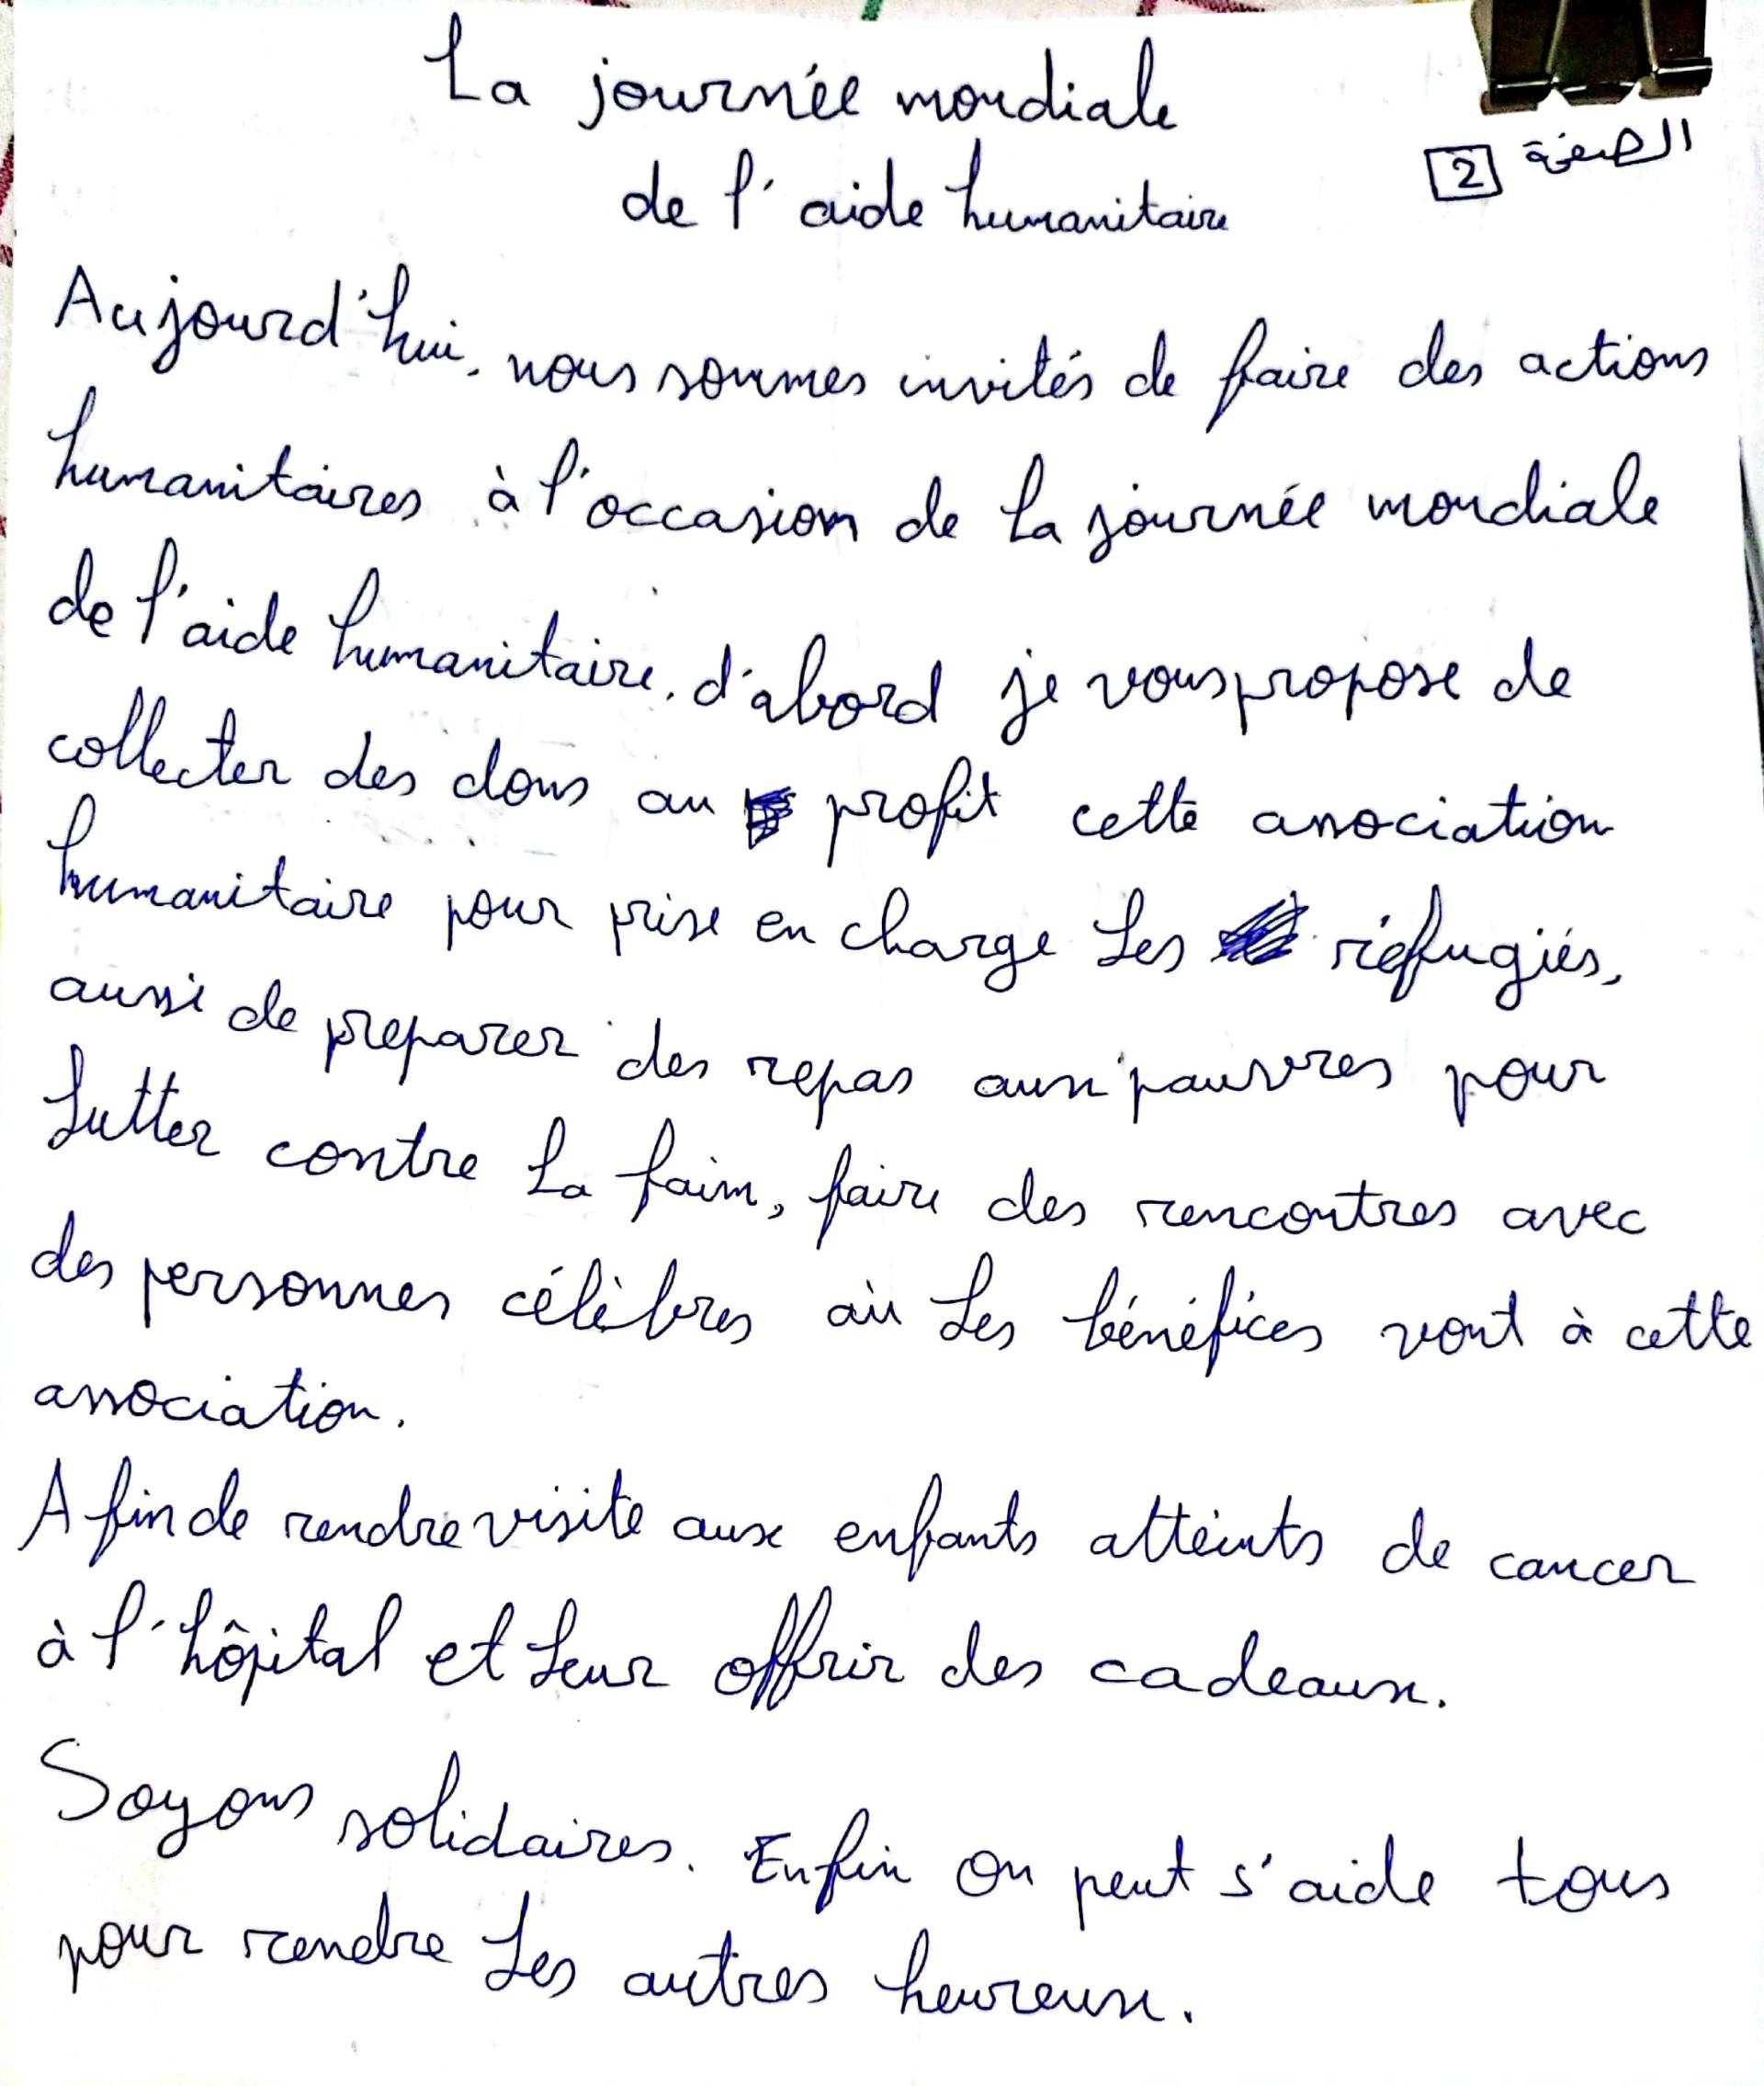 La journée mondiale
الصفحة 2
de l'aide humanitaire
Aujourd'hui, nous sommes invités de faire des actions
humanitaires à l'occasion de la journée mondiale
de l'aide humanitaire. d'abord je vous propose de
collecter des dons au profit cette association
humanitaire pour prise en charge les réfugiés,
aussi de preparer des repas aux pauvres pour
lutter contre la faim, faire des rencontres avec
des personnes célèbres où les bénéfices vont à cette
association.
Afin de rendre visite aux enfants atteints de cancer
à l'hôpital et leur offrir des cadeaux.
Soyons solidaires. Enfin on peut s'aide tous
pour rendre les autres heureux.